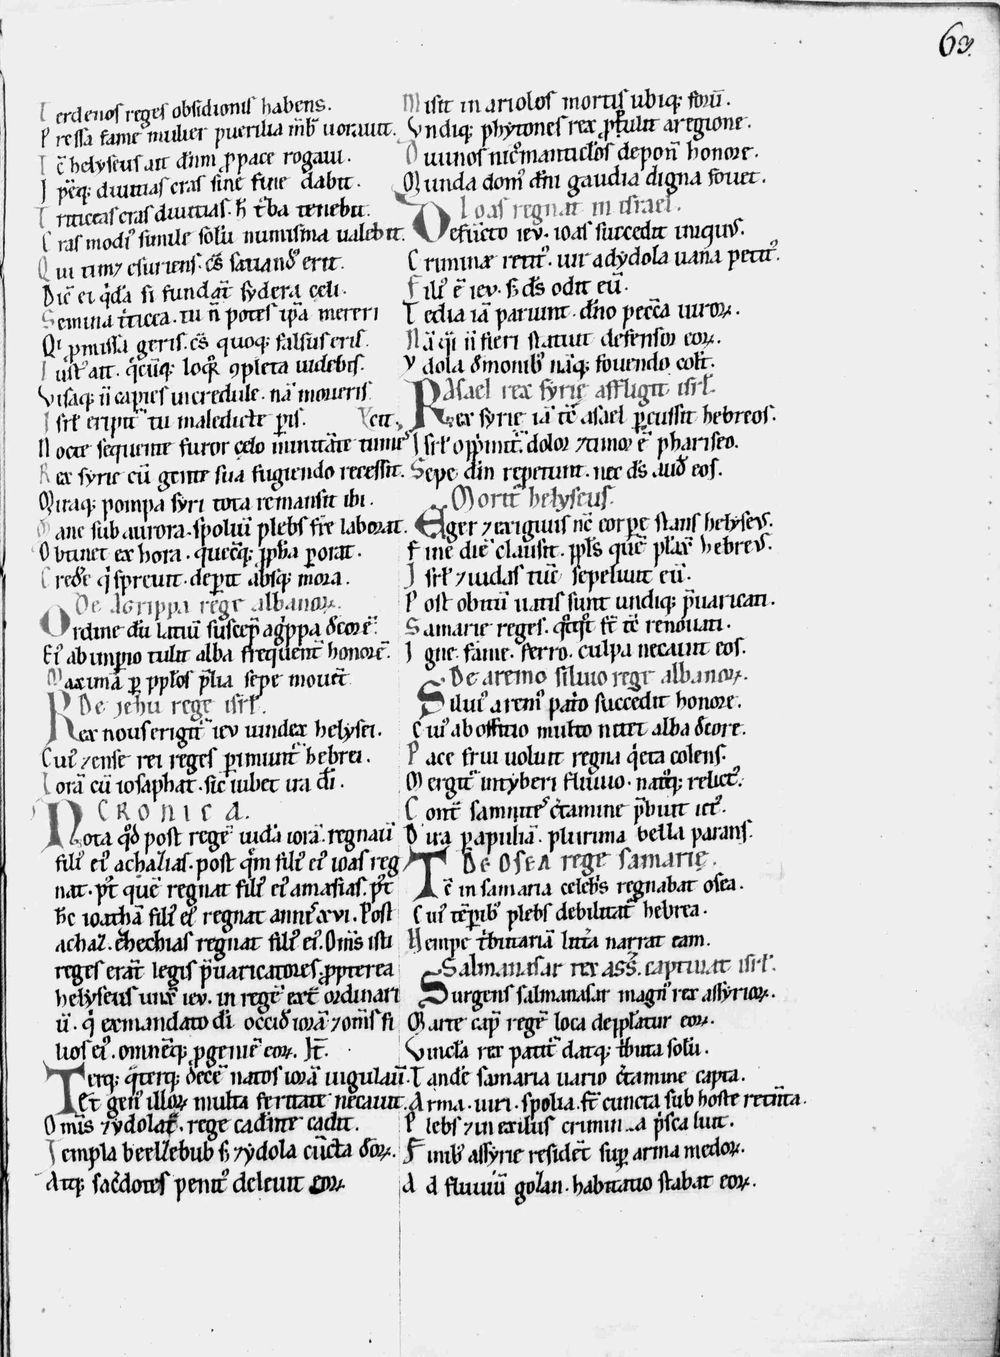 63.
Terdenos reges obsidionis habens.
Pressa fame mulier puerilia mēb̄ uorauit.
Tc̄ helyseus ait dn̄m ꝓ pace rogaui.
Ip̄eq; diuitias cras sine fine dabit.
Triticeas cras diuitias. h̄ t̄ba tenebit.
Cras modi᷒ simile solū numisma ualebit.
Qui tim⁊ esuriens. cā̄s sauiand᷒ erit.
Dic̄ ei q̄da si fundat̄ sydera celi.
Semina t̄ticea. tu n̄ potes ip̄a mereri
Q̄ ꝓmissa geris. cā̄s quoq; falsus eris.
Iust᷒ ait. q̄cūq; loq̄r ꝯpleta uidebis.
Visaq; n̄ capies incredule. nā moueris
Isrł eripit̄ tu maledicte ꝑis.
Nocte sequente furor celo inmitāte tumescit,
Rex syrie cū gente sua fugiendo recessit.
Mitaq; pompa syri tota remansit ibi.
Mane sub aurora. spoliū plebs fr̄e laborat.
Obtinet ex hora. quecūq; ꝓph̄a ꝑorat.
Credͤe q̄ spreuit. deperit absq; mora.
De Agrippa rege albanoꝝ.
Ordine dū latiū suscep̄ ag̊ppa dͤcorē.
Ei᷒ ab imperio tulit alba frequent̄ honorē.
Maximā ꝑ pp̄łos p̄lia sepe mouet̄
De jehu rege isrł.
Rex nouꝰ erigit̄ ieu uindex helysei.
Cui᷒ ⁊ ense rei reges ꝑimunt̄ hebrei.
Iorā cū iosaphat. sic̄ iubet ira dī.
CRONICA.
Nota qd̄ post regē iuda iorā. regnauit
fili᷒ ei᷒ achazias. post qm̄ fili᷒ ei᷒ ioas reg
nat. p̄t quē regnat fili᷒ ei᷒ amasias. p̄t
hc̄ ioathā fili᷒ ei᷒ regnat annis xvi. Post
achaz. ezechias regnat fili᷒ ei᷒. Om̄s isti
reges erāt legis p̄uaricatores. ꝓpterea
helyseus unx̄ ieu. in regē ext̄ ordinari
ū. q̄ ex mandato dī occid᷒ iorā ⁊ om̄s fi
lios ei᷒. omnēq; ꝓgeniē eoꝝ. It̄.
Terq; q̄terq; dͤcē natos iorā uigulaū.
Et gen᷒ illoꝝ multa feritate necauit.
Om̄s ⁊ ydolat̄. rege cadͤnte cadit.
Templa beelzebub s̄ ⁊ ydola cūcta dͤoꝝ.
Atq; sac̄dotes penit᷒ deleuit eoꝝ
Misit in ariolos mortis ubiq; forū.
Vndiq; phytones rex ꝓtulit a regione.
Diuinos nic̊manticłos deponit honore.
Munda dom᷒ dn̄i gaudia digna fouet.
Ioas regnat in israel.
Defūcto ieu. ioas succedit iniquus.
Criminæ retit᷒. uir ad ydola uana petit᷒.
Fili᷒ ē ieu. s̄ ds̄ odit eū.
Tedia iā pariunt. dn̄o pecc̄a uiroꝝ.
Nā q̄ n̄ fieri statuit defensor eoꝝ.
Ydola dͤmonib᷒ nāq; fouendo col̄t.
Rasael rex syrię affligit isrł.
Rex syrię iā tē asael ꝑcussit hebreos.
Isrł opp̄mit̄ dolor ⁊ timor ē phariseo.
Sepe dn̄ repetunt. nec ds̄ audit eos.
Morit̄ helyseus.
Eger ⁊ exiguus nc̄ corpe stans helyseus.
Fine diē clausit. ppl̄s quē plāx̄ hebreus.
Isrł ⁊ iudas tūc sepeliuit eū.
Post obitū uatis sunt undiq; p̄uaricati.
Samarie reges. q̊tq̊t st̄ tc̄ renouati.
Igne. fame. ferro. culpa necauit eos.
De aremo siluio rege albanoꝝ.
Silui᷒ arem᷒ patͦo succedit honore.
Cui᷒ ab offitio multo nitet alba dͤcore.
Pace frui uoluit regna q̄eta colens.
Mergit̄ in tyberi fluuio. natoq; relict᷒.
Cont̄ samnites c̄tamine p̄buit ict᷒.
Dira ꝑ apuliā. plurima bella parans.
De OSEA rege samarię.
Tc̄ in samaria celeb̄s regnabat osea.
Cui᷒ tēꝑib᷒ plebs debilitat̄ hebrea.
Nempe t̄butariā litt̄a narrat eam.
Salmanasar rex ass̄. captiuat isrł.
Surgens salmanasar magn᷒ rex assyrioꝝ.
Marte cap̄ regē loca dep̄datur eoꝝ.
Vincła rex patit̄ datq; t̄buta solū.
Tandē samaria uario c̄tamine capta.
Arma. uiri. spolia. st̄ cuncta sub hoste retēta.
Plebs ⁊ in exilius crimina p̄sca luit.
Finib᷒ assyrie residēt suꝑ arma medoꝝ.
Ad fluuiū gozan. habitatio stabat eoꝝ.